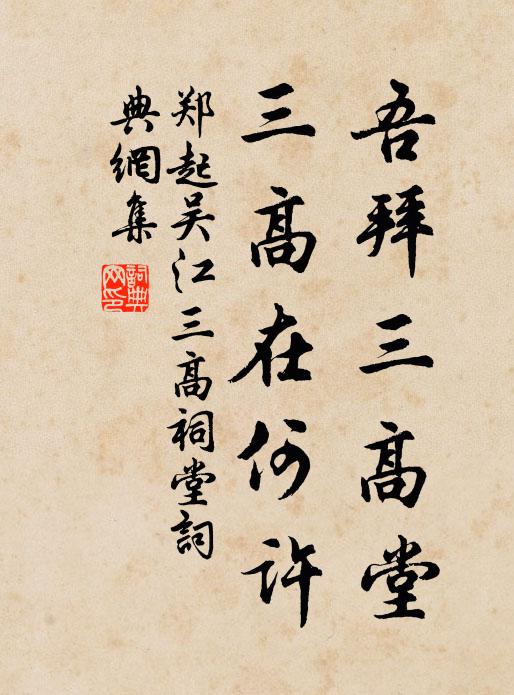 吾拜三高堂
三高在何许
郑起吴江三高祠堂詞
典網集
詞典网印